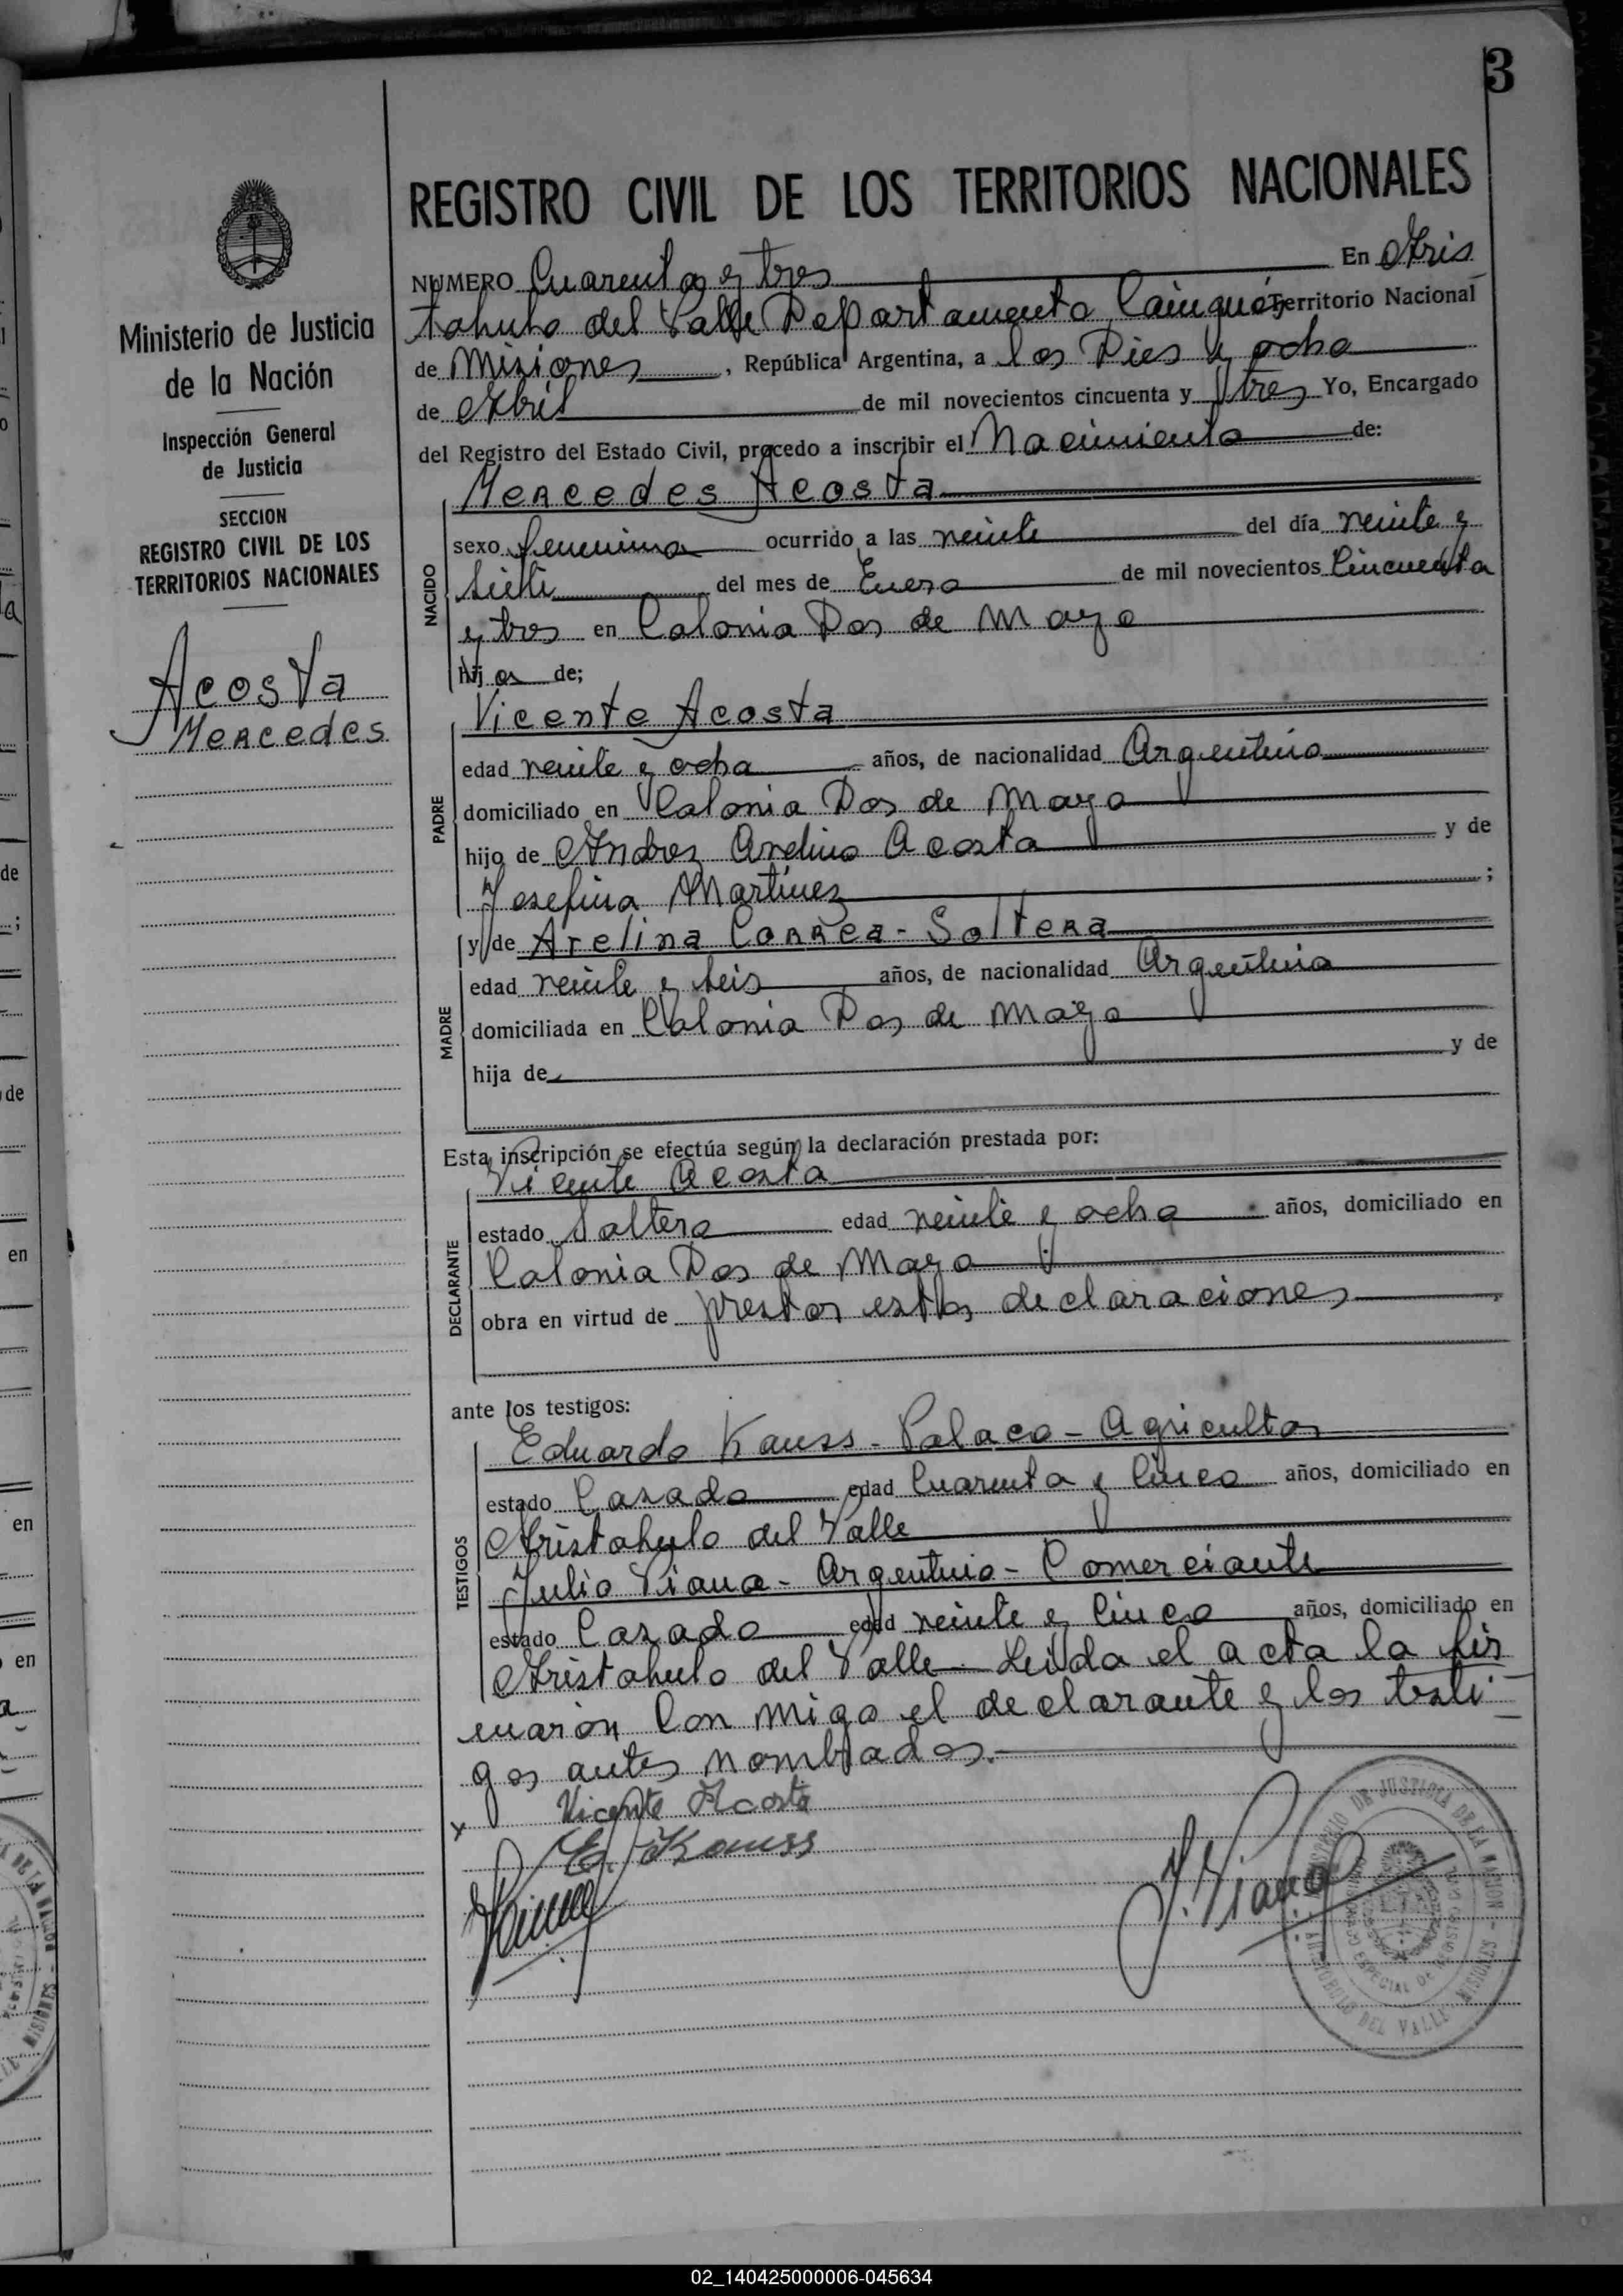 3
REGISTRO CIVIL DE LOS TERRITORIOS NACIONALES
Ministerio de Justicia
de la Nación
Inspección General
de Justicia
SECCION
REGISTRO CIVIL DE LOS
TERRITORIOS NACIONALES
Acosta
Mercedes
NUMERO Cuarenta y tres En Aris
tobulo del Valle Departamento Cainguás Territorio Nacional
de Misiones, República Argentina, a los Dies y ocho
de Abril de mil novecientos cincuenta y tres Yo, Encargado
del Registro del Estado Civil, procedo a inscribir el Nacimiento de:
NACIDO
Mercedes Acosta
sexo femenino ocurrido a las veinte del día veinte y
siete del mes de Enero de mil novecientos Cincuenta
y tres en Colonia Dos de Mayo
hij a de;
PADRE
Vicente Acosta
edad veinte y ocho años, de nacionalidad Argentino
domiciliado en Colonia Dos de Mayo
hijo de Andres Avelino Acosta y de
Josefina Martinez ;
MADRE
y de Avelina Correa - Soltera
edad veinte y seis años, de nacionalidad Argentina
domiciliada en Colonia Dos de Mayo
hija de y de
Esta inscripción se efectúa según la declaración prestada por:
DECLARANTE
Vicente Acosta
estado Soltero edad veinte y ocho años, domiciliado en
Colonia Dos de Mayo
obra en virtud de prestar estas declaraciones
ante los testigos:
TESTIGOS
Eduardo Kauss - Polaco - Agricultor
estado Casado edad Cuarenta y Cinco años, domiciliado en
Aristobulo del Valle
Julio Viana - Argentino - Comerciante
estado Casado edad veinte y Cinco años, domiciliado en
Aristobulo del Valle - Leida el acta la fir
maron Con migo el declarante y los testi
gos antes nombrados.
x Vicente Acosta
E. Kauss
J. Viana
MINISTERIO DE JUSTICIA DE LA NACION - ARISTOBULO DEL VALLE - MISIONES
02_140425000006-045634